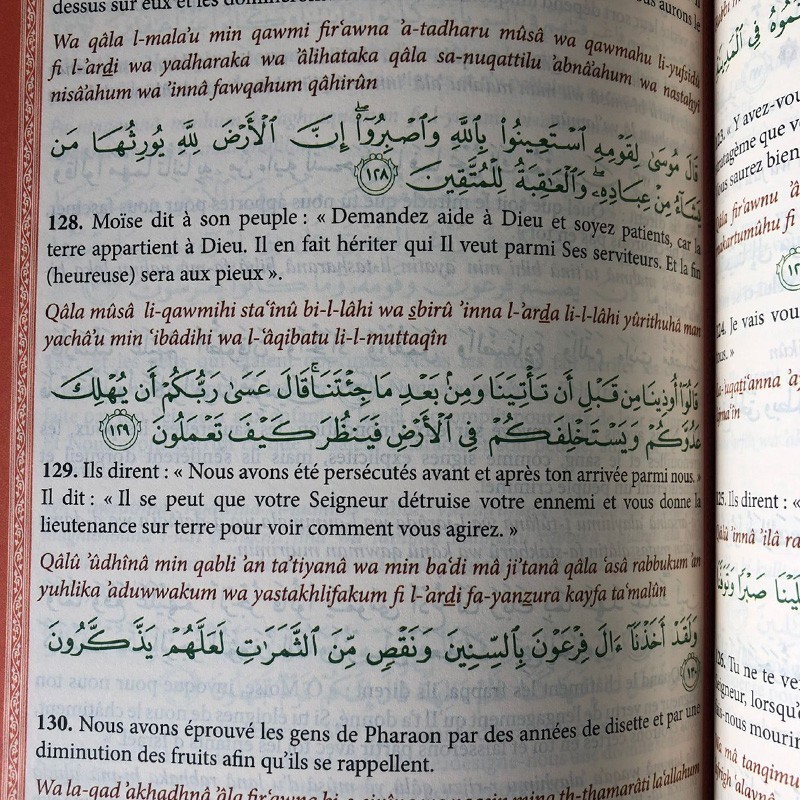 dessus sur eux et les
ous aurons le
Wa qâla l-mala'u min qawmi fir‘awna ’a-tadharu mûsâ wa qawmahu li-yufsidû
fi l-’arḏi wa yadharaka wa ’âlihataka qâla sa-nuqattilu ’abnâ’ahum wa nastahyî
nisâ’ahum wa ’innâ fawqahum qâhirûn
قَالَ مُوسَىٰ لِقَوْمِهِ ٱسْتَعِينُوا۟ بِٱللَّهِ وَٱصْبِرُوٓا۟ ۖ إِنَّ ٱلْأَرْضَ لِلَّهِ يُورِثُهَا مَن
يَشَآءُ مِنْ عِبَادِهِۦ ۖ وَٱلْعَٰقِبَةُ لِلْمُتَّقِينَ ١٢٨
128. Moïse dit à son peuple : « Demandez aide à Dieu et soyez patients, car la
terre appartient à Dieu. Il en fait hériter qui Il veut parmi Ses serviteurs. Et la fin
(heureuse) sera aux pieux ».
Qâla mûsâ li-qawmihi sta‘înû bi-l-lâhi wa s̱birû ’inna l-’arḏa li-l-lâhi yûrithuhâ man
yachâ’u min ‘ibâdihi wa l-‘âqibatu li-l-muttaqîn
قَالُوٓا۟ أُوذِينَا مِن قَبْلِ أَن تَأْتِيَنَا وَمِنۢ بَعْدِ مَا جِئْتَنَا ۚ قَالَ عَسَىٰ رَبُّكُمْ أَن يُهْلِكَ
عَدُوَّكُمْ وَيَسْتَخْلِفَكُمْ فِى ٱلْأَرْضِ فَيَنظُرَ كَيْفَ تَعْمَلُونَ ١٢٩
129. Ils dirent : « Nous avons été persécutés avant et après ton arrivée parmi nous. »
Il dit : « Il se peut que votre Seigneur détruise votre ennemi et vous donne la
lieutenance sur terre pour voir comment vous agirez. »
Qâlû ’ûdhînâ min qabli ’an ta’tiyanâ wa min ba‘di mâ ji’tanâ qâla ‘asâ rabbukum ’an
yuhlika ‘aduwwakum wa yastakhlifakum fi l-’arḏi fa-yanẕura kayfa ta‘malûn
وَلَقَدْ أَخَذْنَآ ءَالَ فِرْعَوْنَ بِٱلسِّنِينَ وَنَقْصٍ مِّنَ ٱلثَّمَرَٰتِ لَعَلَّهُمْ يَذَّكَّرُونَ
١٣٠
130. Nous avons éprouvé les gens de Pharaon par des années de disette et par une
diminution des fruits afin qu’ils se rappellent.
Wa la-qad ’akhadhnâ ’âla fir‘awna bi-s-sinîna wa naqsin mina th-thamarâti la‘allahum
« Y avez-vou
ous saurez bien
Je vais vou
125. Ils dirent : «
Tu ne te ve
eigneur, lorsqu’